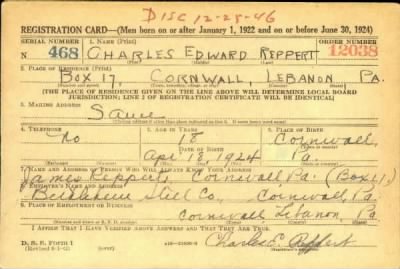 DISC 12-28-46
REGISTRATION CARD—(Men born on or after January 1, 1922 and on or before June 30, 1924)
SERIAL NUMBER 1. NAME (Print) ORDER NUMBER
N 468 CHARLES EDWARD REPPERT 12038
2. PLACE OF RESIDENCE (Print)
BOX 17, CORNWALL, LEBANON PA.
(THE PLACE OF RESIDENCE GIVEN ON THE LINE ABOVE WILL DETERMINE LOCAL BOARD
JURISDICTION; LINE 2 OF REGISTRATION CERTIFICATE WILL BE IDENTICAL)
3. MAILING ADDRESS
Same
4. TELEPHONE 5. AGE IN YEARS 6. PLACE OF BIRTH
no 18 Cornwall,
DATE OF BIRTH
Apr 18, 1924 Pa.
7. NAME AND ADDRESS OF PERSON WHO WILL ALWAYS KNOW YOUR ADDRESS
Reppert, Cornwall, Pa.
8. EMPLOYER'S NAME AND ADDRESS
Bethlehem Steel Co., Cornwall, Pa.
9. PLACE OF EMPLOYMENT OR BUSINESS
Cornwall, Lebanon Pa.
I AFFIRM THAT I HAVE VERIFIED ABOVE ANSWERS AND THAT THEY ARE TRUE.
D. S. S. FORM 1
Charles E. Reppert